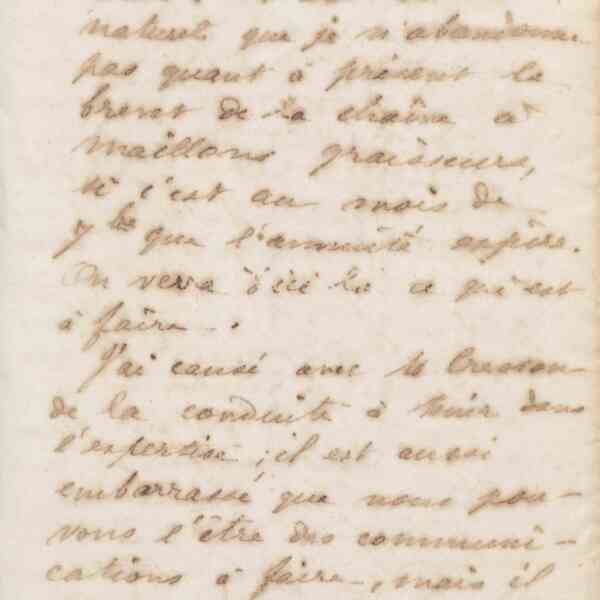 naturel que je n'abandonne
pas quant à présent le
brevet de la chaîne à
maillons graisseurs,
si c'est au mois de
7bre que l'annuité expire.
On verra d'ici là ce qu'est
à faire.
J'ai causé avec Mr Cresson
de la conduite à tenir dans
l'expertise ; il est aussi
embarrassé que nous pou-
vons l'être des communi-
cations à faire, mais il